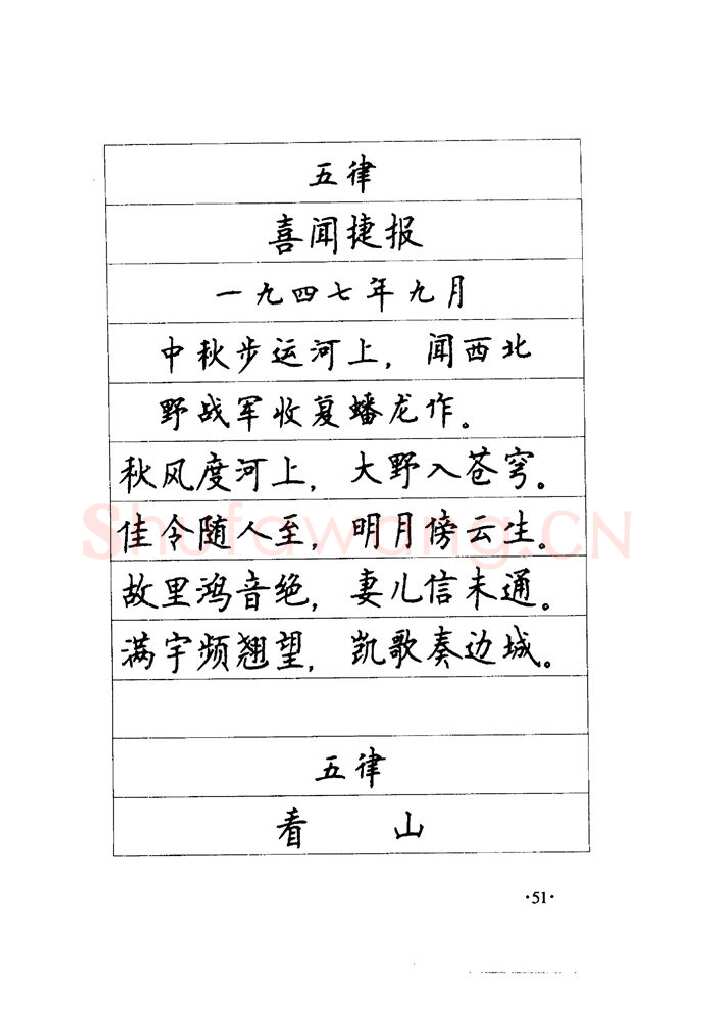 五律
喜闻捷报
一九四七年九月
中秋步运河上，闻西北
野战军收复蟠龙作。
秋风度河上，大野入苍穹。
佳令随人至，明月傍云生。
故里鸿音绝，妻儿信未通。
满宇频翘望，凯歌奏边城。
Shufawang.CN
五律
看 山
·51·